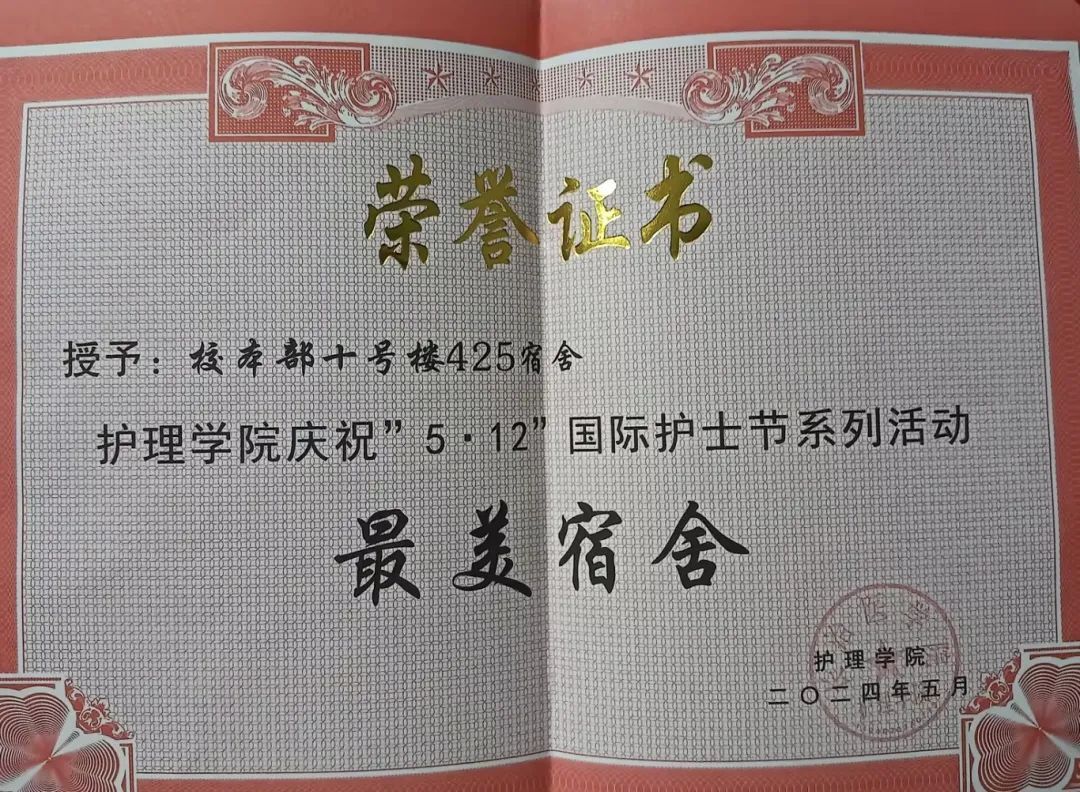 荣誉证书
授予：校本部十号楼425宿舍
护理学院庆祝”5·12”国际护士节系列活动
最美宿舍
护理学院
二〇二四年五月